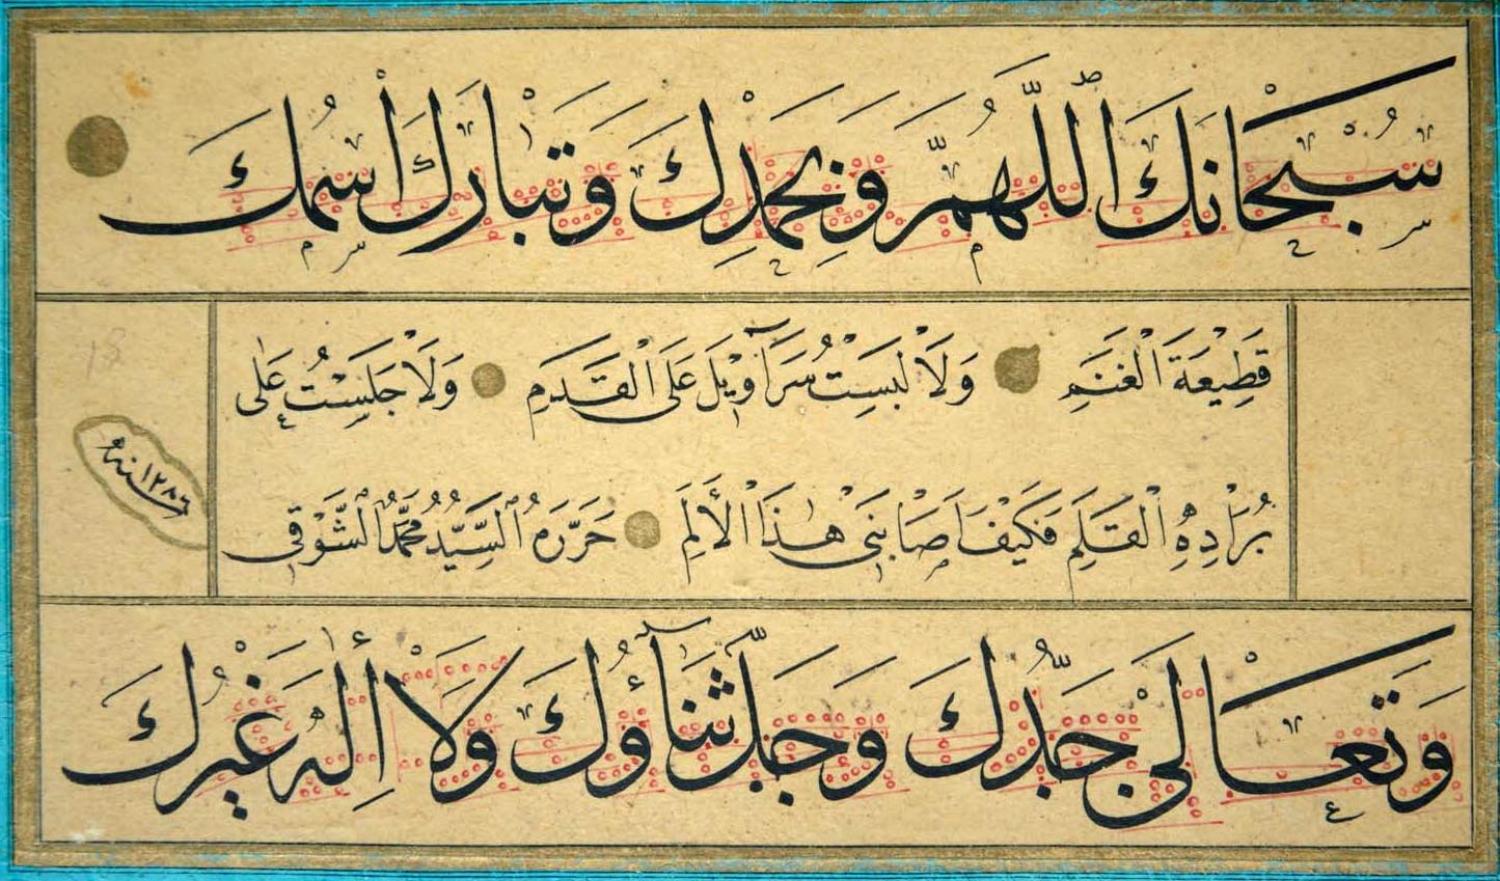 سُبْحَانَكَ اللّٰهُمَّ وَبِحَمْدِكَ وَتَبَارَكَ اسْمُكَ
قَطِيعَةَ الْغَنَمِ وَلَا لَبِسْتُ سَرَاوِيلَ عَلَى الْقَدَمِ وَلَا جَلَسْتُ عَلٰى
بُرَادِهِ الْقَلَمِ فَكَيْفَ اَصَابَنِى هٰذَا الْأَلَمِ حَرَّرَهُ السَّيِّدُ مُحَمَّدُ الشَّوْقِى
سنه ١٢٨٦
وَتَعَالٰى جَدُّكَ وَجَلَّ ثَنَاؤُكَ وَلَا إِلٰهَ غَيْرُكَ